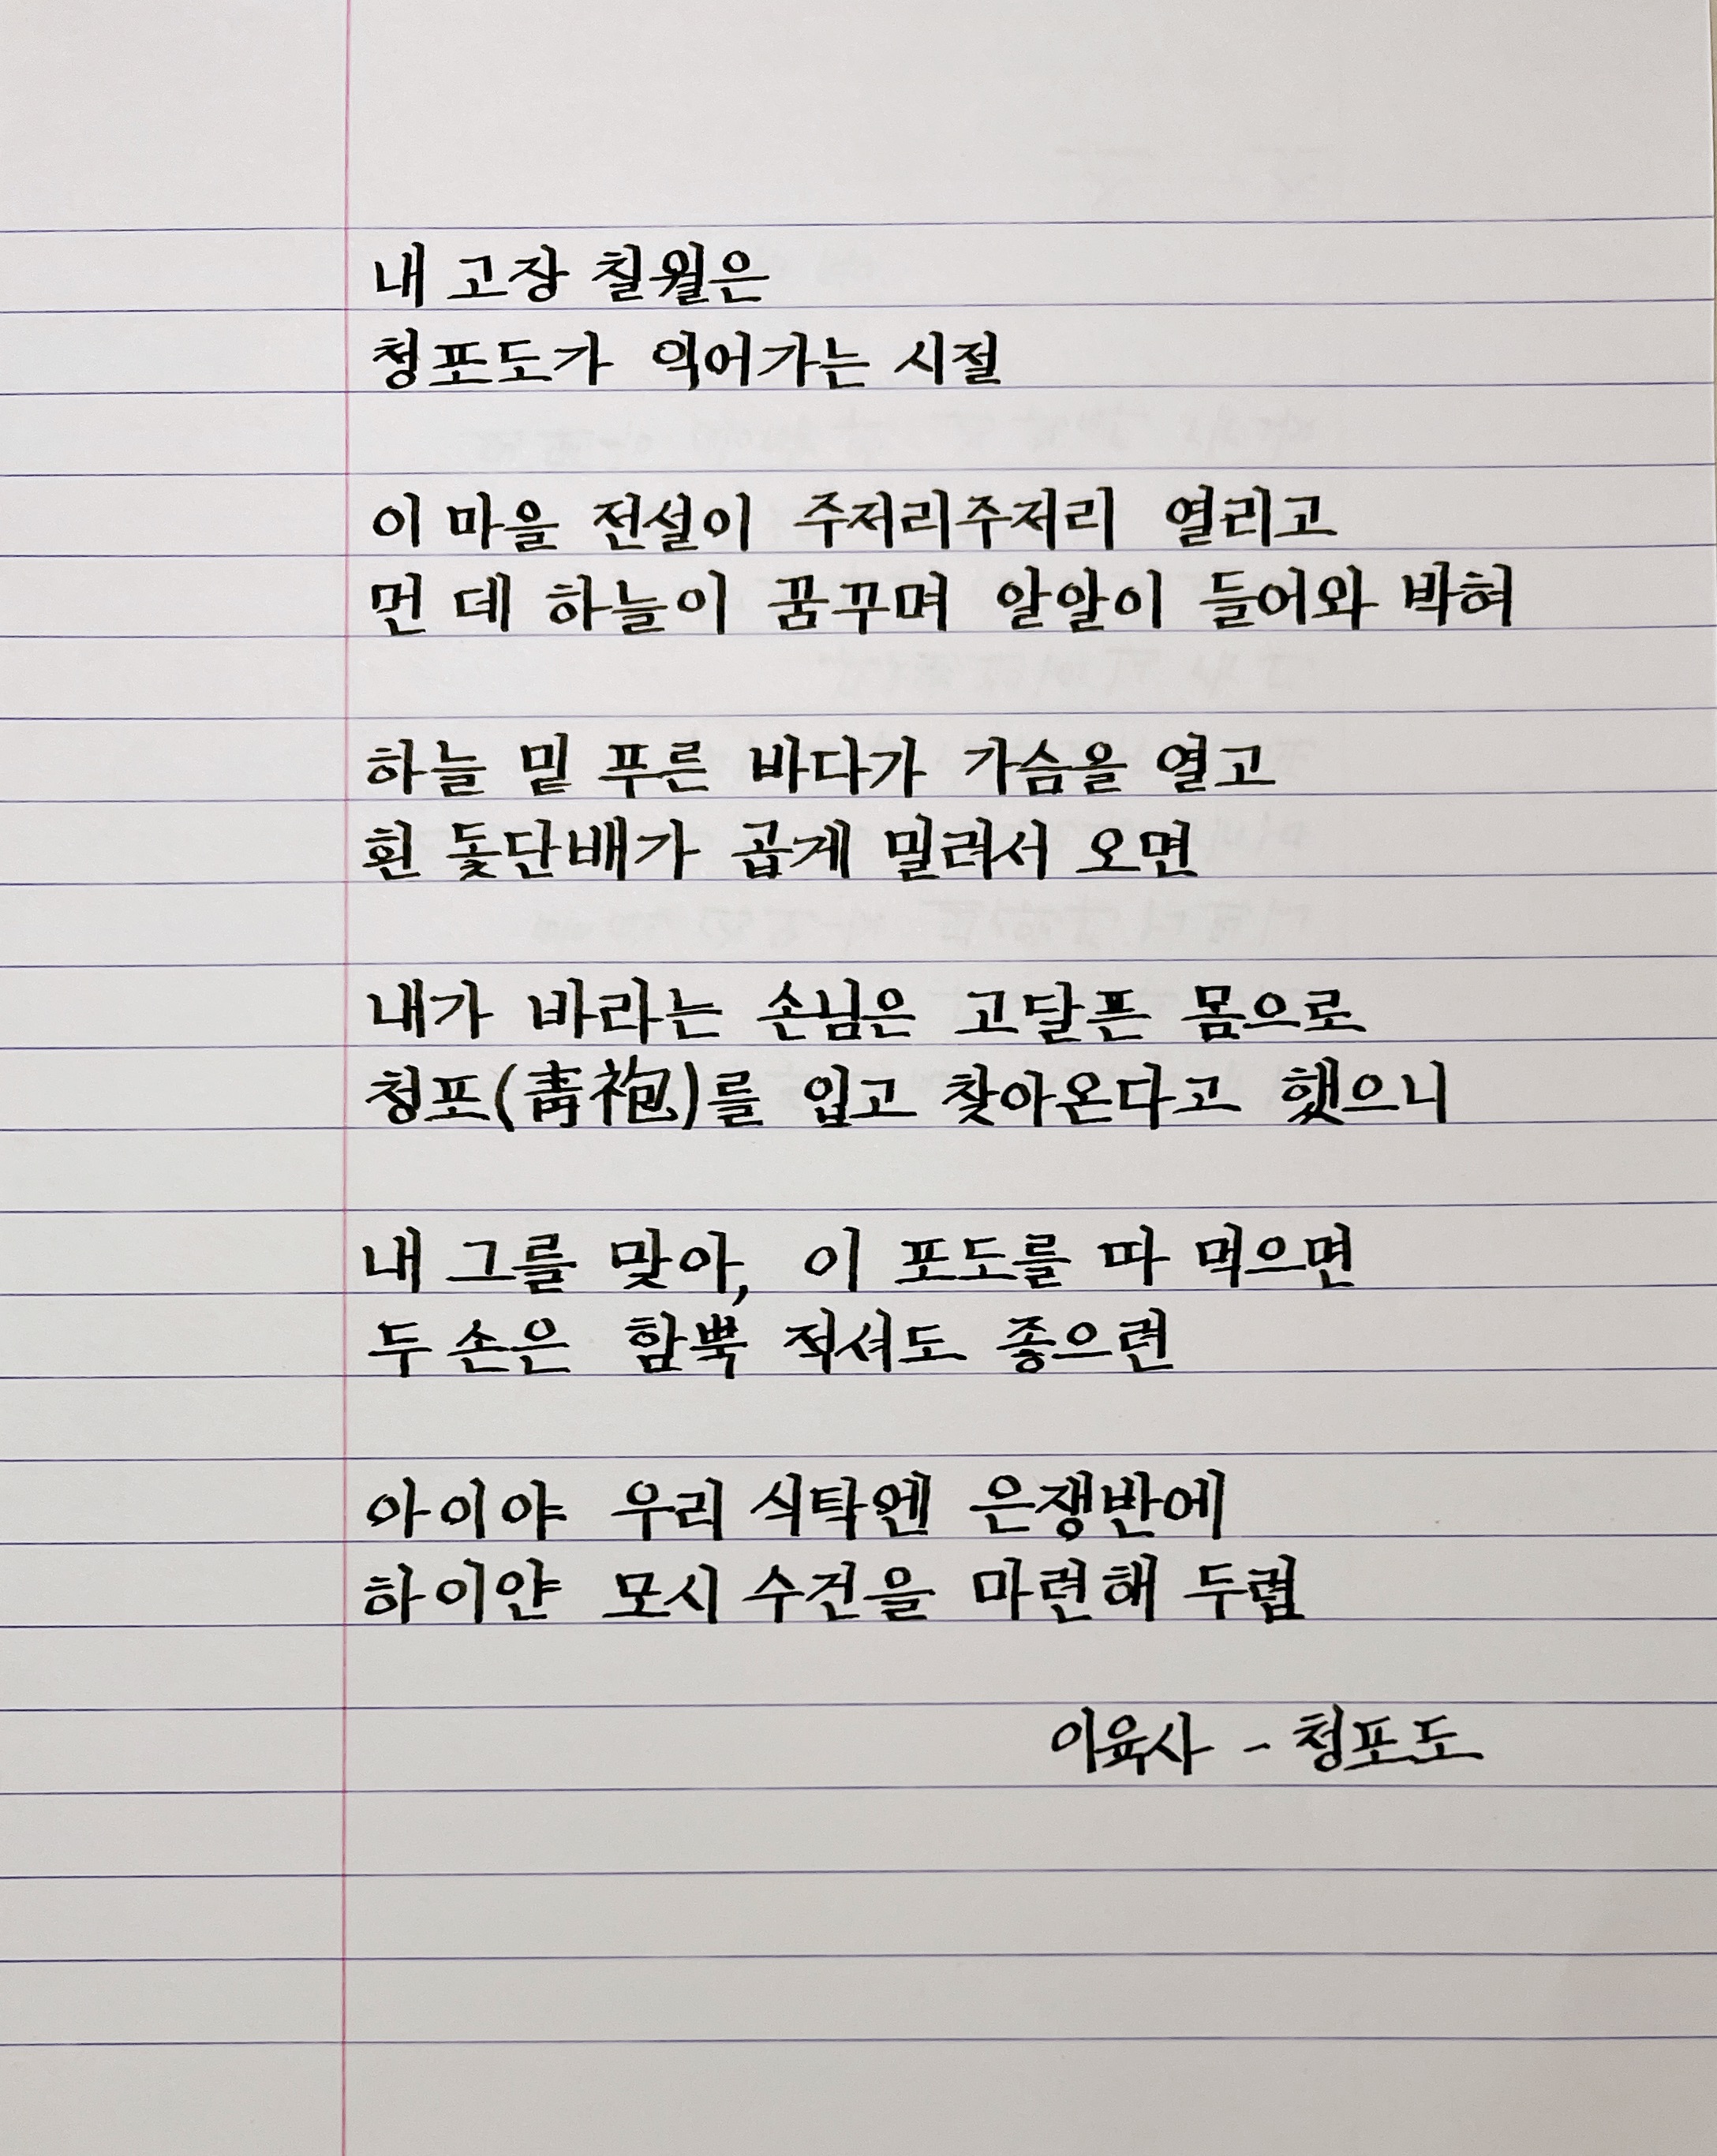 내 고장 칠월은
청포도가 익어가는 시절
이 마을 전설이 주저리주저리 열리고
먼 데 하늘이 꿈꾸며 알알이 들어와 박혀
하늘 밑 푸른 바다가 가슴을 열고
흰 돛단배가 곱게 밀려서 오면
내가 바라는 손님은 고달픈 몸으로
청포(靑袍)를 입고 찾아온다고 했으니
내 그를 맞아, 이 포도를 따 먹으면
두 손은 함뿍 적셔도 좋으련
아이야 우리 식탁엔 은쟁반에
하이얀 모시 수건을 마련해 두렴
이육사 - 청포도